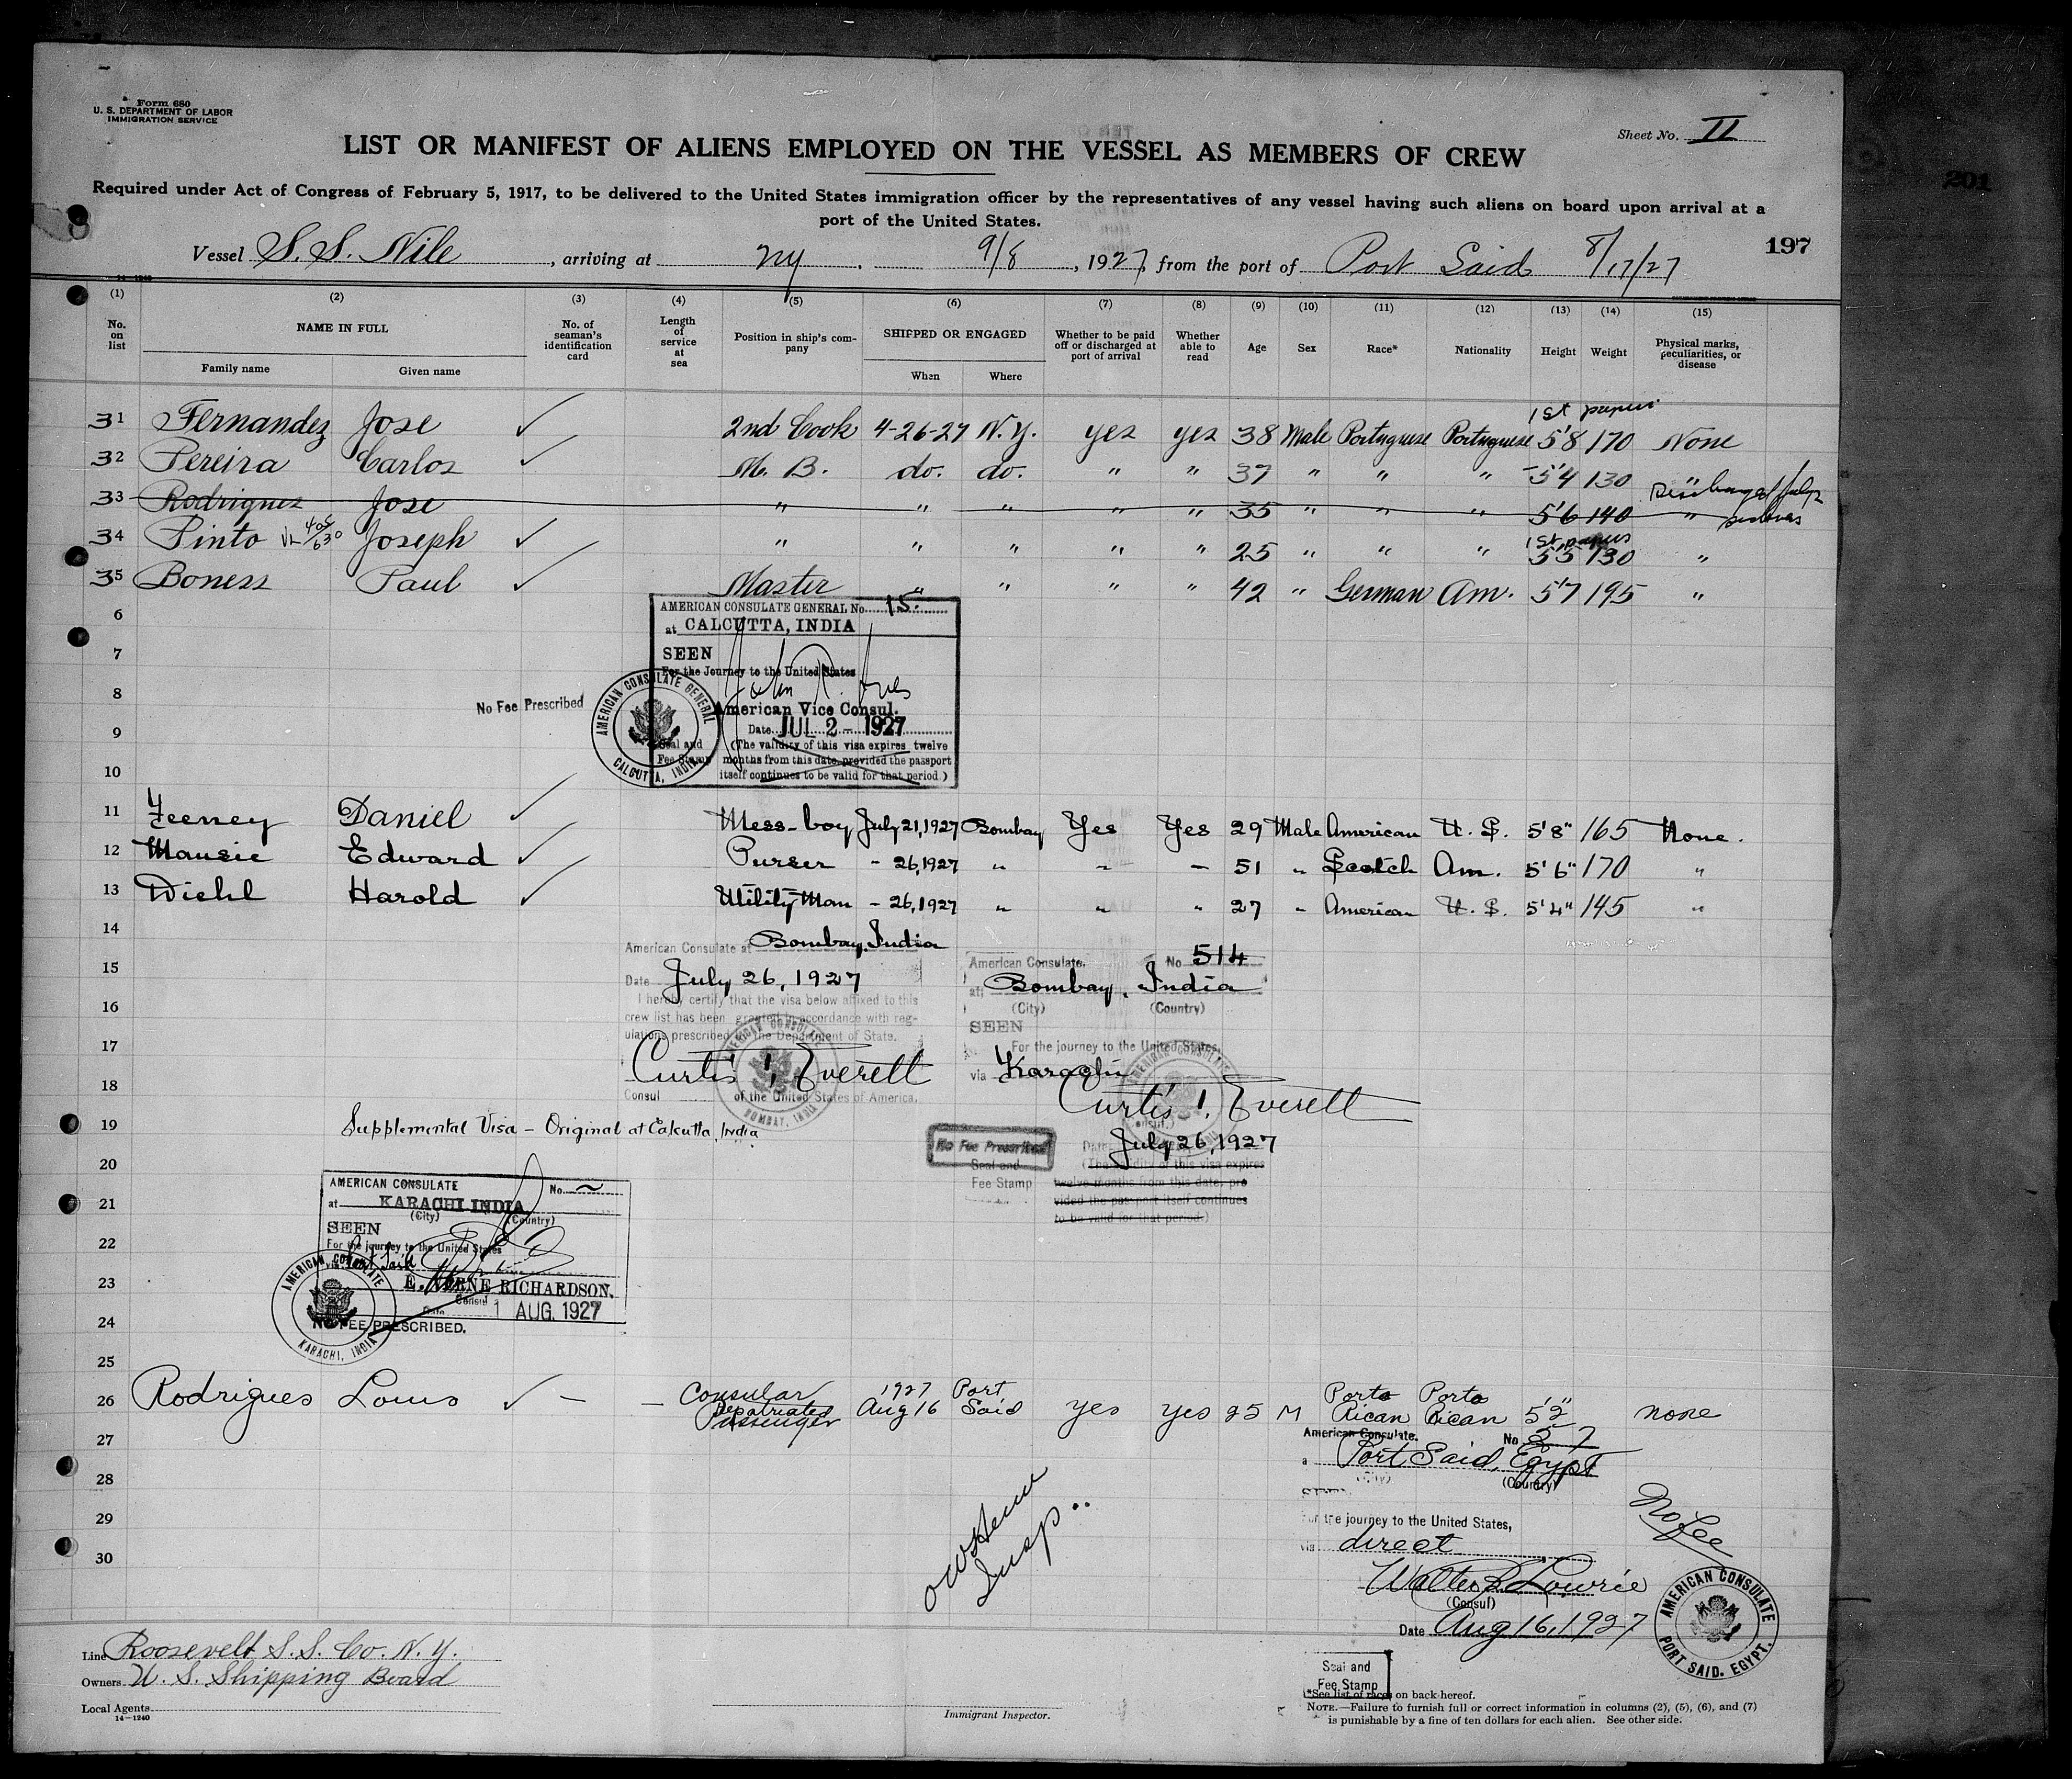 Form 680
U. S. DEPARTMENT OF LABOR
IMMIGRATION SERVICE
Sheet No. II
LIST OR MANIFEST OF ALIENS EMPLOYED ON THE VESSEL AS MEMBERS OF CREW
Required under Act of Congress of February 5, 1917, to be delivered to the United States immigration officer by the representatives of any vessel having such aliens on board upon arrival at a
port of the United States.
201
197
Vessel S. S. Nile, arriving at NY. 9/8, 1927, from the port of Port Said 8/17/27
14-1240
(1) (2) (3) (4) (5) (6) (7) (8) (9) (10) (11) (12) (13) (14) (15)
No. on list
NAME IN FULL
Family name
Given name
No. of seaman's identification card
Length of service at sea
Position in ship's company
SHIPPED OR ENGAGED
When
Where
Whether to be paid off or discharged at port of arrival
Whether able to read
Age
Sex
Race*
Nationality
Height
Weight
Physical marks, peculiarities, or disease
1st papers
31 Fernandez Jose ✓ 2nd Cook 4-26-27 N.Y. yes yes 38 Male Portuguese Portuguese 5'8 170 None
32 Pereira Carlos ✓ M. B. do. do. " " 37 " " " 5'4 130 "
Discharged
33 Rodriguez Jose " " " " " 35 " " " 5'6 140 "
1st papers
34 Pinto 405/630 Joseph ✓ " " " " " 25 " " " 5'5 130 "
35 Boness Paul ✓ Master " " " " 42 " German Am. 5'7 195 "
6
7
8
9
10
AMERICAN CONSULATE GENERAL No. 15.
at CALCUTTA, INDIA
SEEN
For the Journey to the United States
American Vice Consul.
Date JUL 2 - 1927
(The validity of this visa expires twelve
months from this date, provided the passport
itself continues to be valid for that period)
Seal and
Fee Stamp
AMERICAN CONSULATE GENERAL
CALCUTTA, INDIA
No Fee Prescribed
11 Feeney Daniel ✓ Mess-boy July 21, 1927 Bombay Yes Yes 29 Male American U. S. 5'8" 165 None.
12 Mausie Edward ✓ Purser " 26, 1927 " " " 51 " Scotch Am. 5'6" 170 "
13 Diehl Harold ✓ Utility Man " 26, 1927 " " " 27 " American U. S. 5'4" 145 "
14
15
16
17
18
19
20
21
22
23
24
25
American Consulate at Bombay, India
Date July 26, 1927
I hereby certify that the visa below affixed to this
crew list has been granted in accordance with reg-
ulations prescribed by the Department of State.
Curtis T. Everett
Consul of the United States of America.
AMERICAN CONSULATE
BOMBAY, INDIA
American Consulate. No 514
at Bombay, India
(City) (Country)
SEEN
For the journey to the United States,
via Karachi
Curtis T. Everett
Date July 26, 1927
(The validity of this visa expires
twelve months from this date, pro
vided the passport itself continues
to be valid for that period.)
No Fee Prescribed
Seal and
Fee Stamp
Supplemental Visa - Original at Calcutta, India
AMERICAN CONSULATE No.
at KARACHI INDIA
(City) (Country)
SEEN
For the journey to the United States
via Port Said
E. VERNE RICHARDSON.
Consul
Date 1 AUG. 1927
NO FEE PRESCRIBED.
AMERICAN CONSULATE
KARACHI, INDIA
26 Rodrigues Louis ✓ — — Consular Repatriated Passenger 1927 Aug 16 Port Said yes yes 25 M Porto Rican Porto Rican 5'2" none
27
28
29
30
American Consulate. No
a Port Said, Egypt
(City) (Country)
For the journey to the United States,
via direct
Walter Lowrie
(Consul)
Date Aug 16, 1927
No fee
AMERICAN CONSULATE
PORT SAID. EGYPT.
Seal and
Fee Stamp
Insp.
Line Roosevelt S. S. Co. N. Y.
Owners U. S. Shipping Board
Local Agents
14-1240
Immigrant Inspector.
*See list of races on back hereof.
NOTE.—Failure to furnish full or correct information in columns (2), (5), (6), and (7)
is punishable by a fine of ten dollars for each alien. See other side.